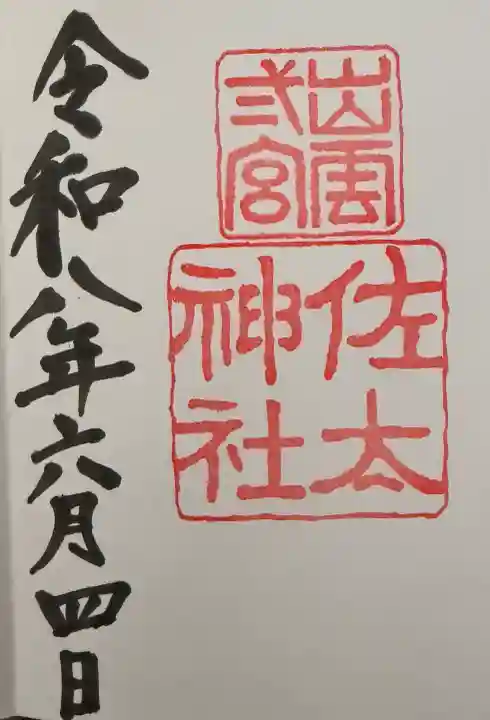 出雲
弍宮
佐太
神社
令和八年六月四日